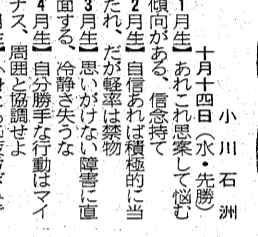 小川石洲
十月十四日（水・先勝）
1月生】あれこれ思案して悩む
傾向がある、信念持て
2月生】自信あれば積極的に当
たれ、だが軽率は禁物
3月生】思いがけない障害に直
面する、冷静さ失うな
4月生】自分勝手な行動はマイ
ナス、周囲と協調せよ